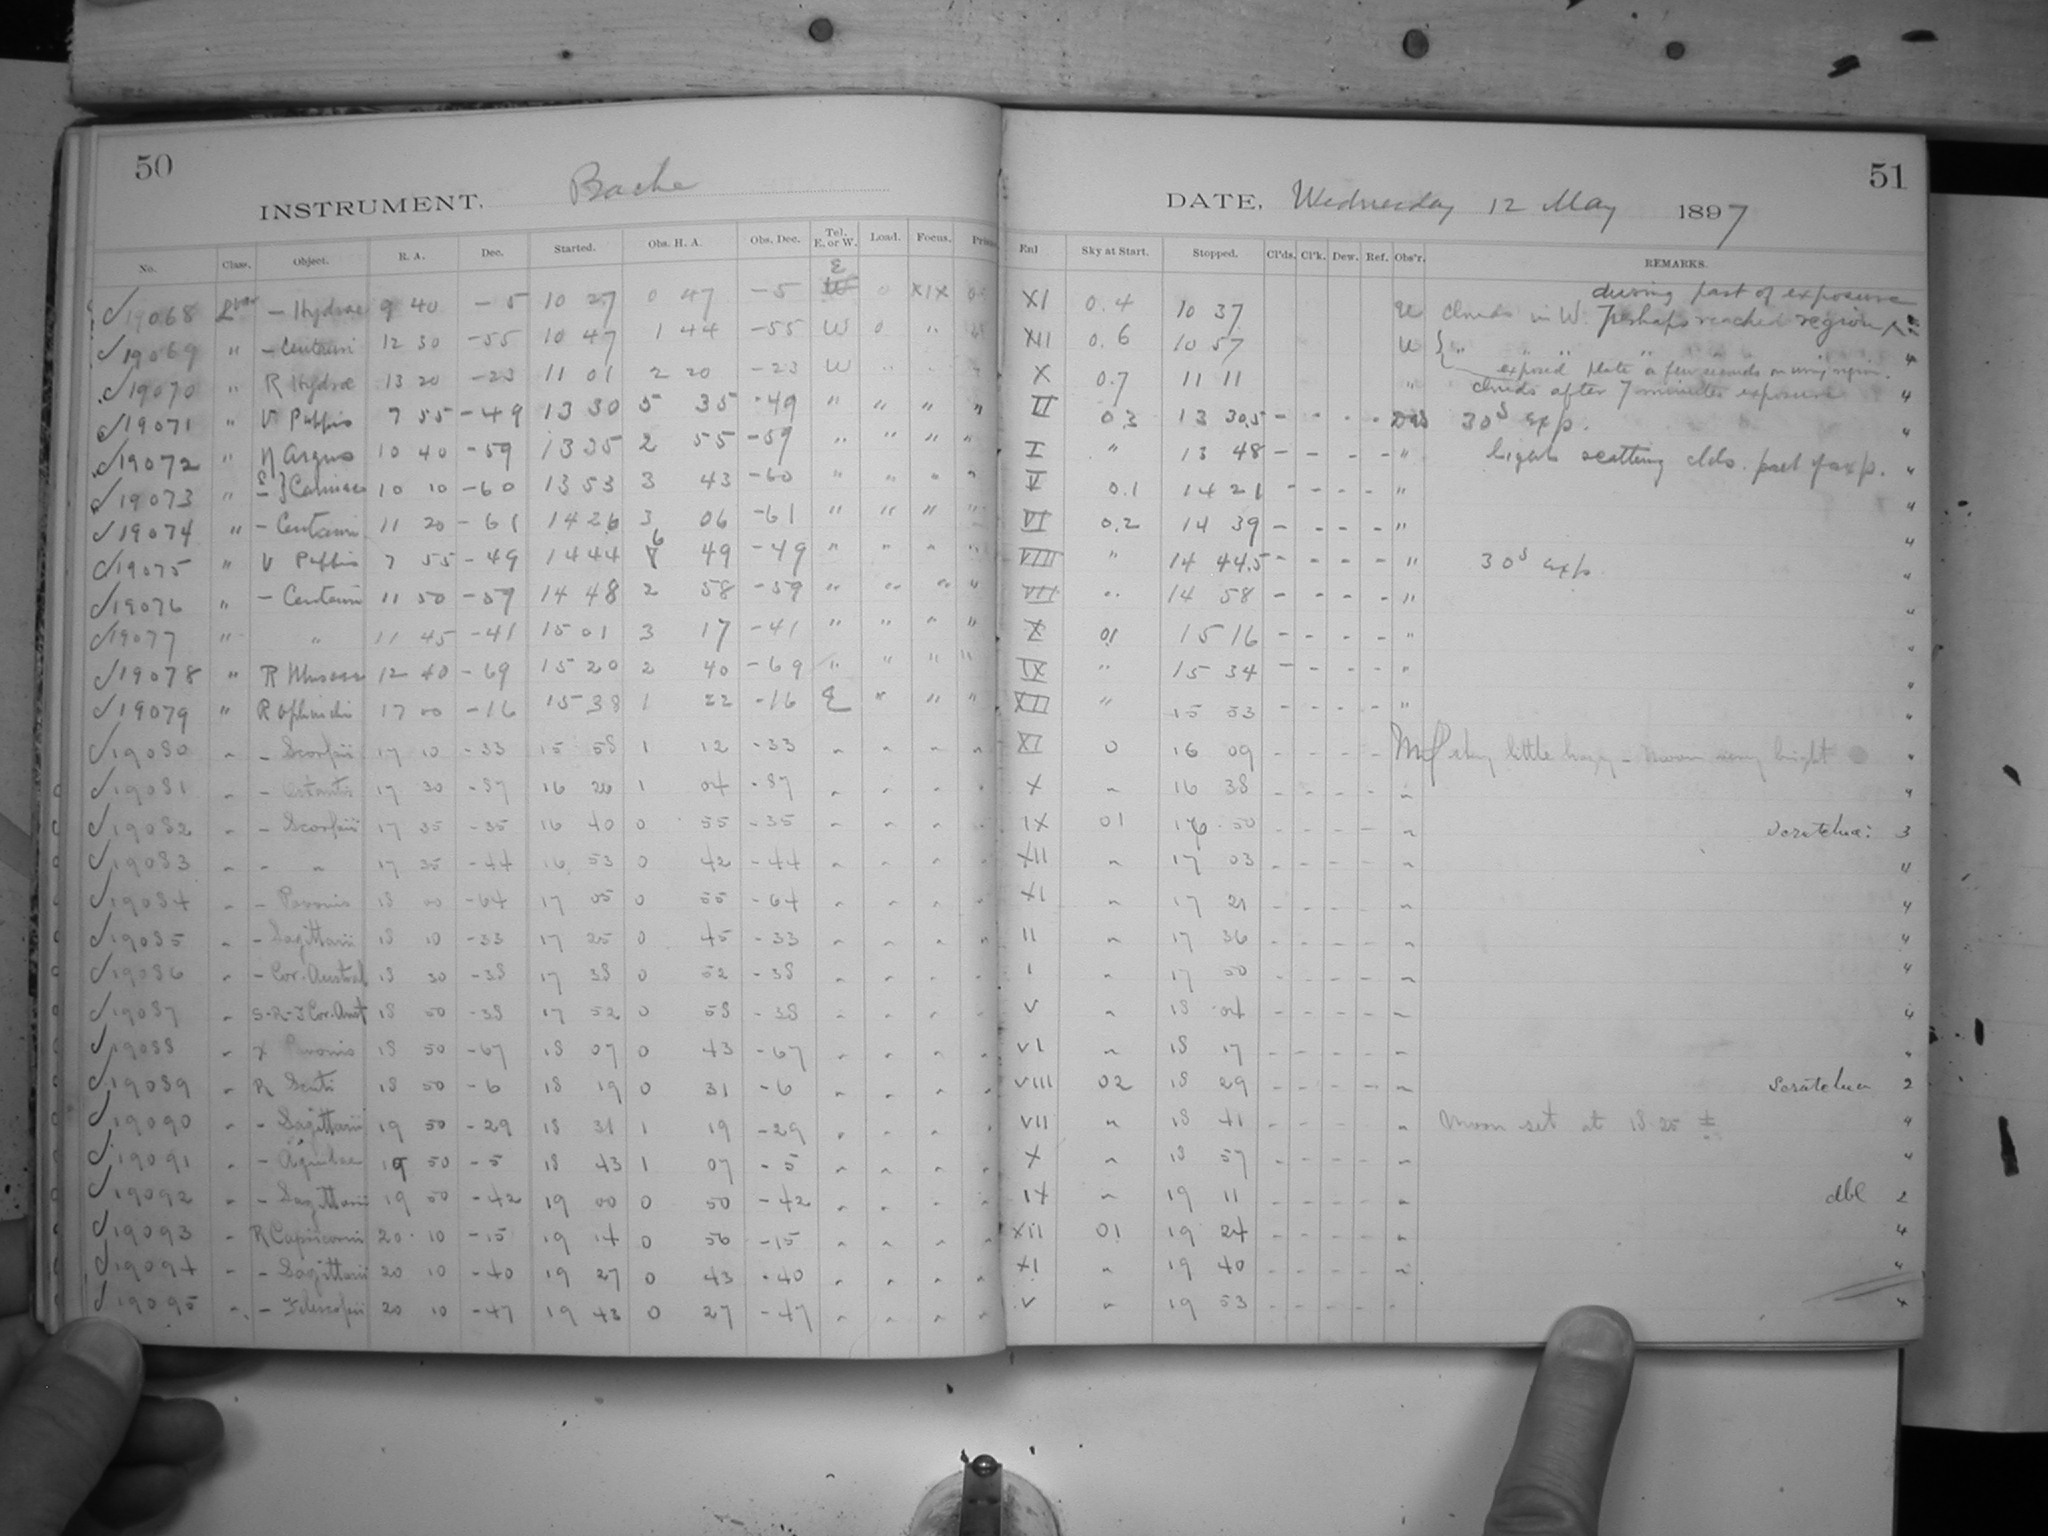 50
INSTRUMENT. Bache
No. Class. Object. R. A. Dec. Started. Obs. H. A. Obs. Dec. Tel. E. or W. Load. Focus.
19068 - Hydrae 9 40 - 5 10 27 0 47 - 5 E 0 XIX
19069 " - Centauri 12 30 - 55 10 47 1 44 - 55 W 0 "
19070 " R Hydrae 13 20 - 23 11 01 2 20 - 23 W " "
19071 " V Puppis 7 55 - 49 13 30 5 35 - 49 " " " "
19072 " η Argus 10 40 - 59 13 35 2 55 - 59 " " " "
19073 " Carinae 10 10 - 60 13 53 3 43 - 60 " " " "
19074 " - Centauri 11 20 - 61 14 26 3 06 - 61 " " " "
19075 " V Puppis 7 55 - 49 14 44 6 49 - 49 " " " "
19076 " - Centauri 11 50 - 59 14 48 2 58 - 59 " " " "
19077 " " 11 45 - 41 15 01 3 17 - 41 " " " "
19078 " R Muscae 12 40 - 69 15 20 2 40 - 69 " " " "
19079 " R Ophiuchi 17 00 - 16 15 38 1 22 - 16 E " " "
19080 " - Scorpii 17 10 - 33 15 58 1 12 - 33 " " " "
19081 " - Octantis 17 30 - 87 16 26 1 04 - 87 " " " "
19082 " - Scorpii 17 35 - 35 16 40 0 55 - 35 " " " "
19083 " - " 17 35 - 44 16 53 0 42 - 44 " " " "
19084 " - Pavonis 18 00 - 64 17 05 0 55 - 64 " " " "
19085 " - Sagittarii 18 10 - 33 17 25 0 45 - 33 " " " "
19086 " - Cor. Austral 18 30 - 38 17 38 0 52 - 38 " " " "
19087 " S-R-T Cor. Aust 18 50 - 38 17 52 0 58 - 38 " " " "
19088 " Pavonis 18 50 - 67 18 07 0 43 - 67 " " " "
19089 " R Scuti 18 50 - 6 18 19 0 31 - 6 " " " "
19090 " - Sagittarii 19 50 - 29 18 31 1 19 - 29 " " " "
19091 " - Aquilae 19 50 - 5 18 43 1 07 - 5 " " " "
19092 " - Sagittarii 19 50 - 42 19 00 0 50 - 42 " " " "
19093 " R Capricorni 20 10 - 15 19 14 0 56 - 15 " " " "
19094 " - Sagittarii 20 10 - 40 19 27 0 43 - 40 " " " "
19095 " - Telescopii 20 10 - 47 19 43 0 27 - 47 " " " "
51
DATE, Wednesday 12 May 1897
Enl Sky at Start. Stopped. Cl'ds. Cl'k. Dew. Ref. Obs'r. REMARKS.
during part of exposure
XI 0.4 10 37 clouds in W. perhaps reached region
XII 0.6 10 57 " " " "
exposed plate a few seconds on wrong region.
X 0.7 11 11 " clouds after 7 minutes exposure "
II 0.3 13 30.5 - - - - 30s exp. "
I " 13 48 - - - - " Light scattering clds. part of exp. "
V 0.1 14 21 - - - - " "
VI 0.2 14 39 - - - - " "
VIII " 14 44.5 - - - - " 30s exp "
VII " 14 58 - - - - " "
X 01 15 16 - - - - " "
IX " 15 34 - - - - " "
XII " 15 53 - - - - " "
XI 0 16 09 - - - - sky little hazy - moon very bright "
X " 16 38 - - - - " "
IX 01 16 50 - - - - " Scratches: 3
XII " 17 03 - - - - " "
XI " 17 21 - - - - " "
II " 17 36 - - - - " "
I " 17 50 - - - - " "
V " 18 04 - - - - " "
VI " 18 17 - - - - " "
VIII 02 18 29 - - - - " Scratches 2
VII " 18 41 - - - - " Moon set at 18 25 ± "
X " 18 57 - - - - " "
IX " 19 11 - - - - " dbl 2
XII 01 19 24 - - - - " "
XI " 19 40 - - - - " "
V " 19 53 - - - - "